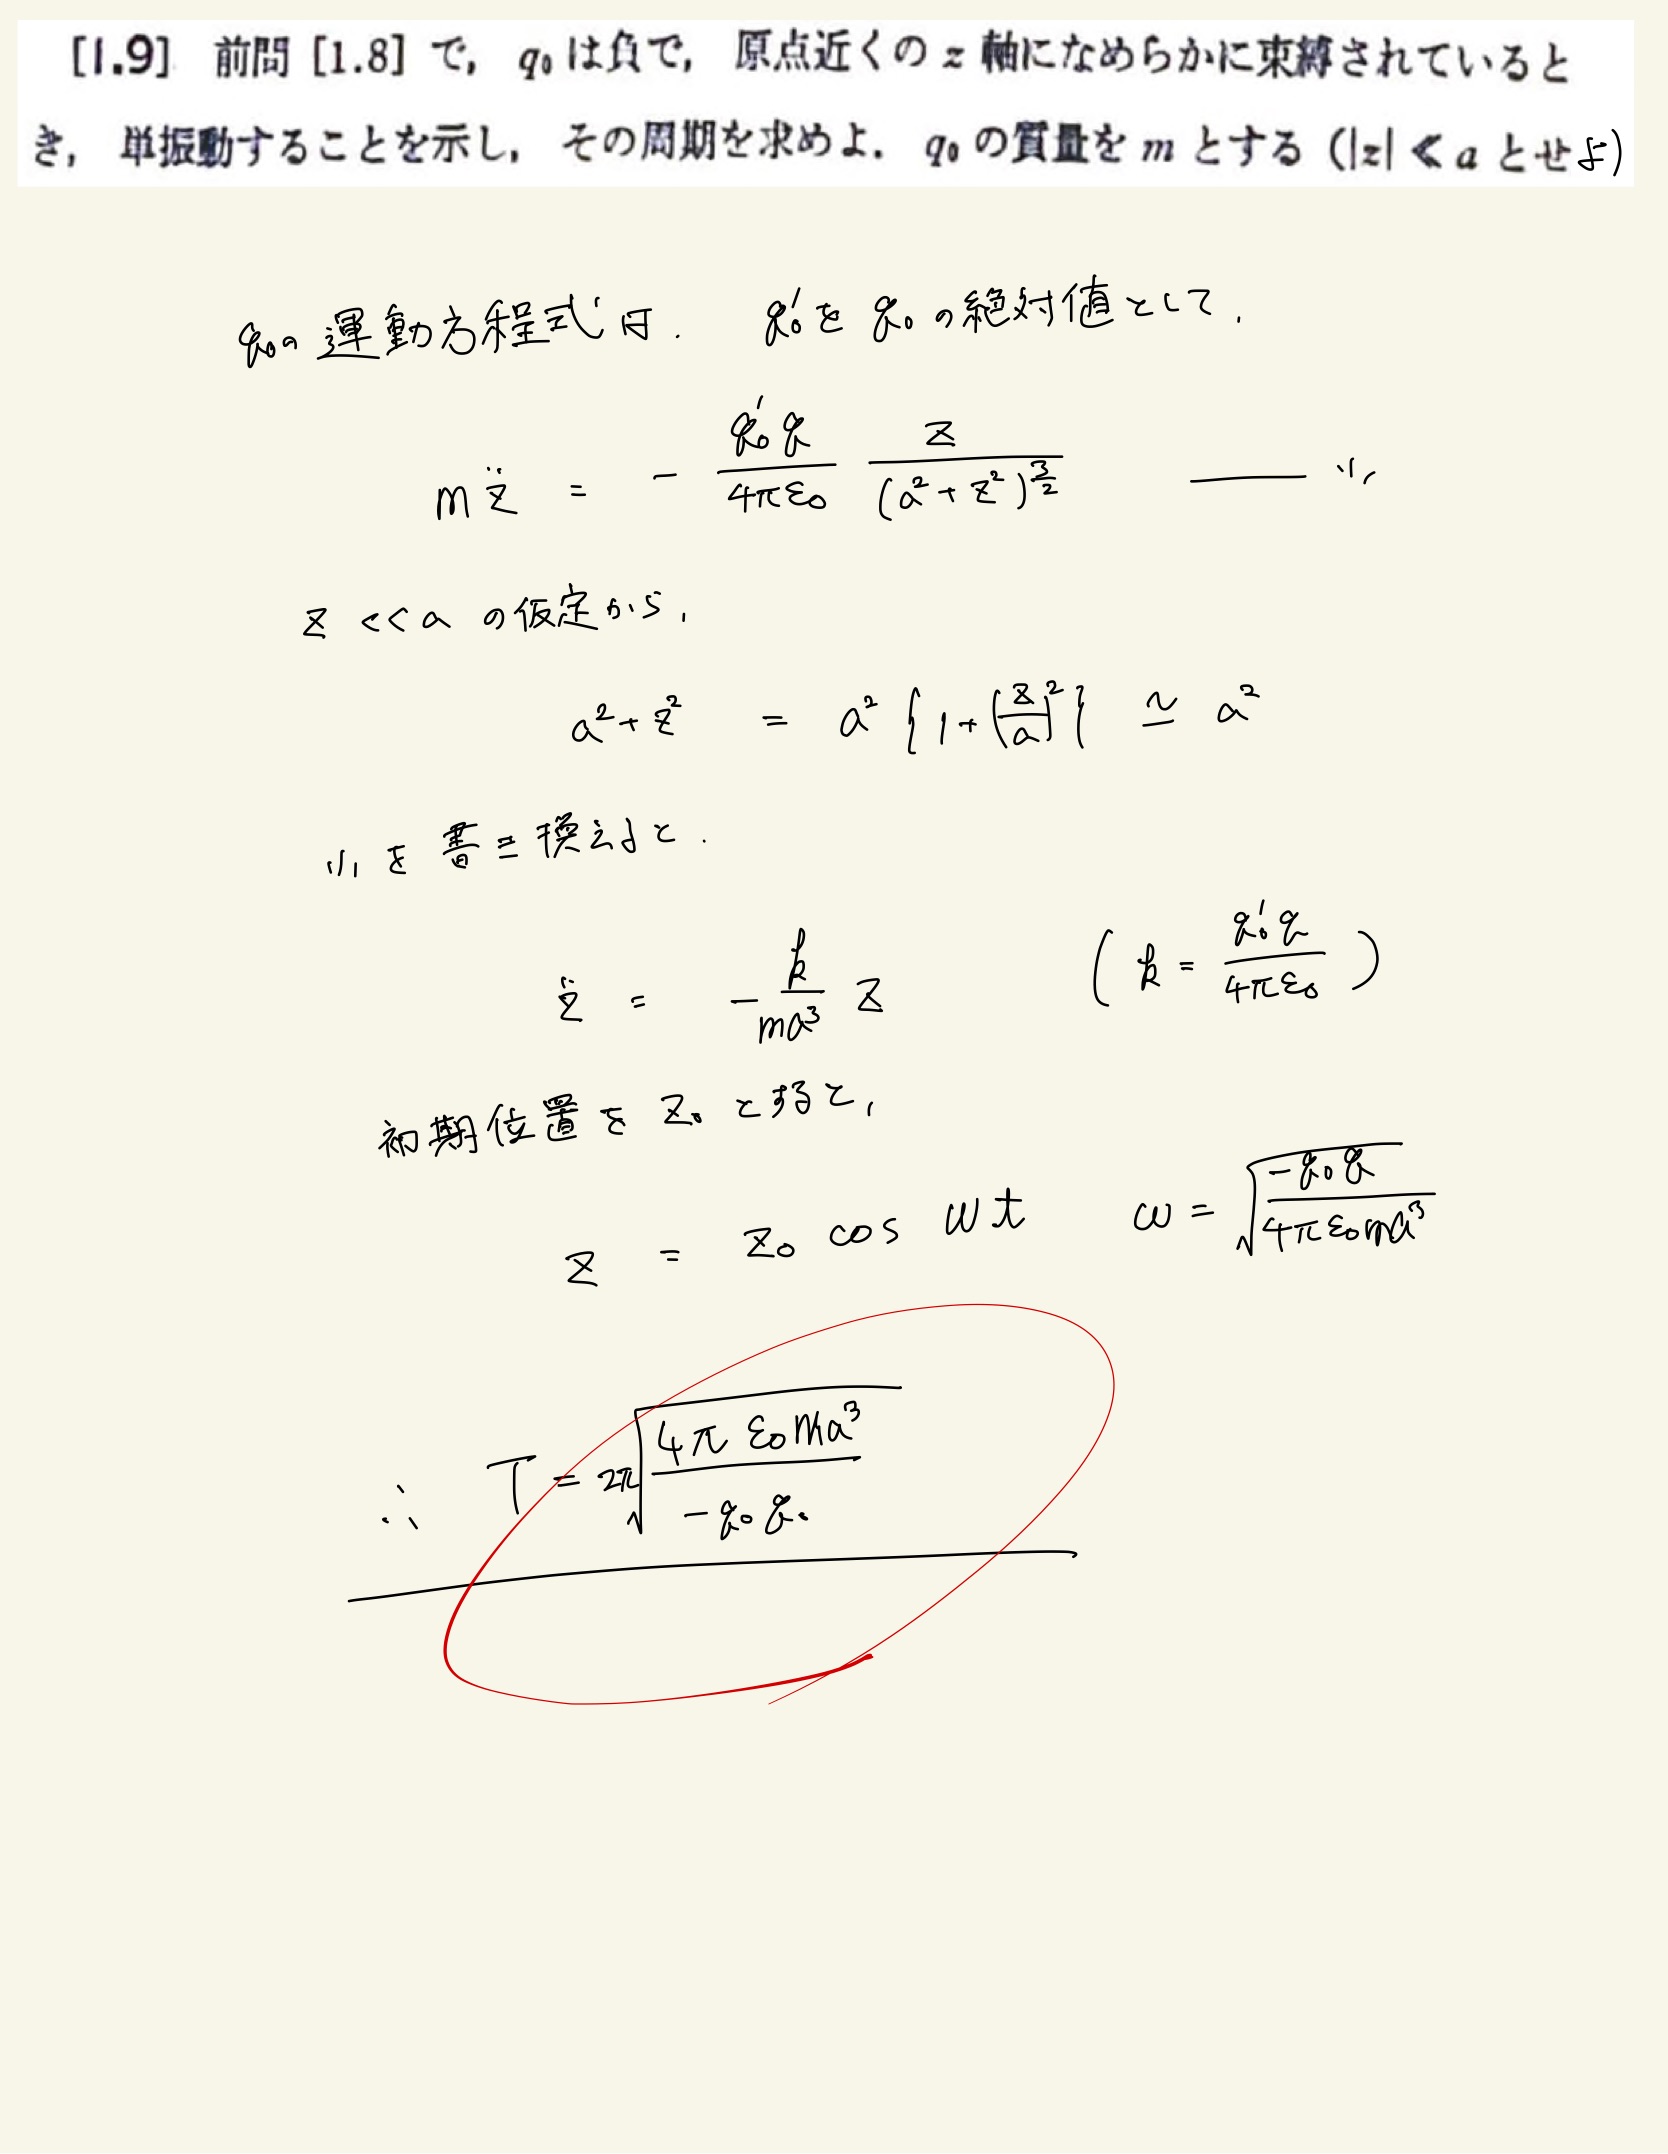 [1.9] 前問 [1.8] で, q₀ は負で, 原点近くの z 軸になめらかに束縛されていると
き, 単振動することを示し, その周期を求めよ. q₀ の質量を m とする (|z| ≪ a とせよ)
q₀の 運動方程式は. q₀′を q₀ の絶対値として,
m z̈ = - q₀′q/4πε₀ z/(a²+z²)^{3/2} —— (1)
z << a の仮定から,
a²+z² = a² {1+(z/a)²} ≃ a²
(1) を書き換えると.
z̈ = - k/ma³ z ( k = q₀′q/4πε₀ )
初期位置を z₀ とすると,
z = z₀ cos ωt ω = √(-q₀q/4πε₀ma³)
∴ T = 2π√(4π ε₀ma³/-q₀q.)